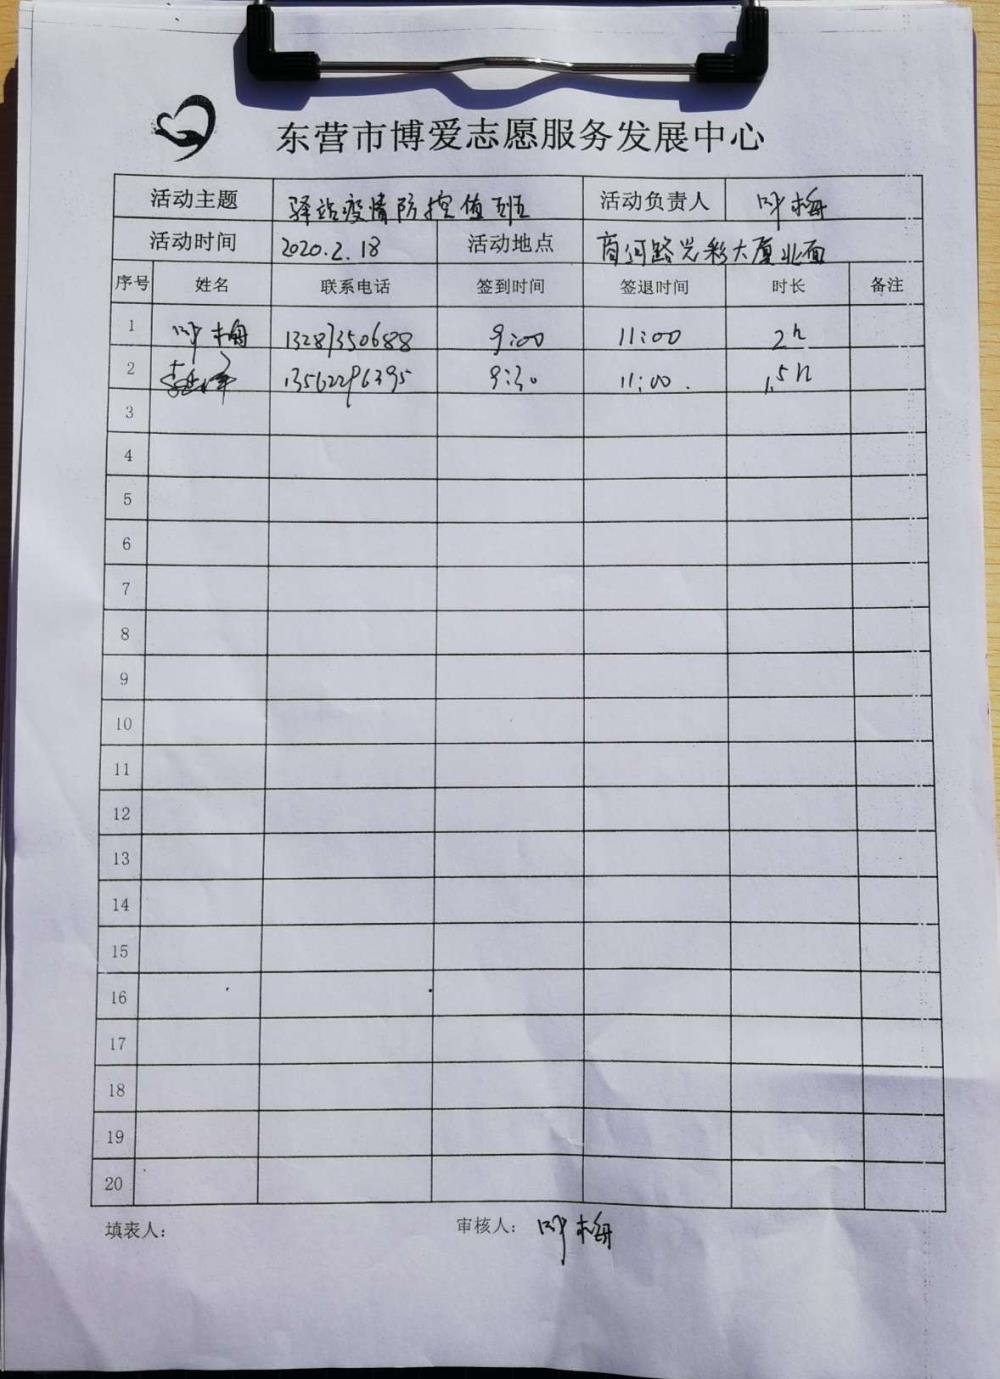 东营市博爱志愿服务发展中心
活动主题 驿站疫情防控值班 活动负责人 叶梅
活动时间 2020.2.18 活动地点 商河路光彩大厦北面
序号 姓名 联系电话 签到时间 签退时间 时长 备注
1 叶梅 13287350688 9:00 11:00 2h
2 13562296395 9:30 11:00. 1.5h
3
4
5
6
7
8
9
10
11
12
13
14
15
16
17
18
19
20
填表人: 审核人: 叶梅